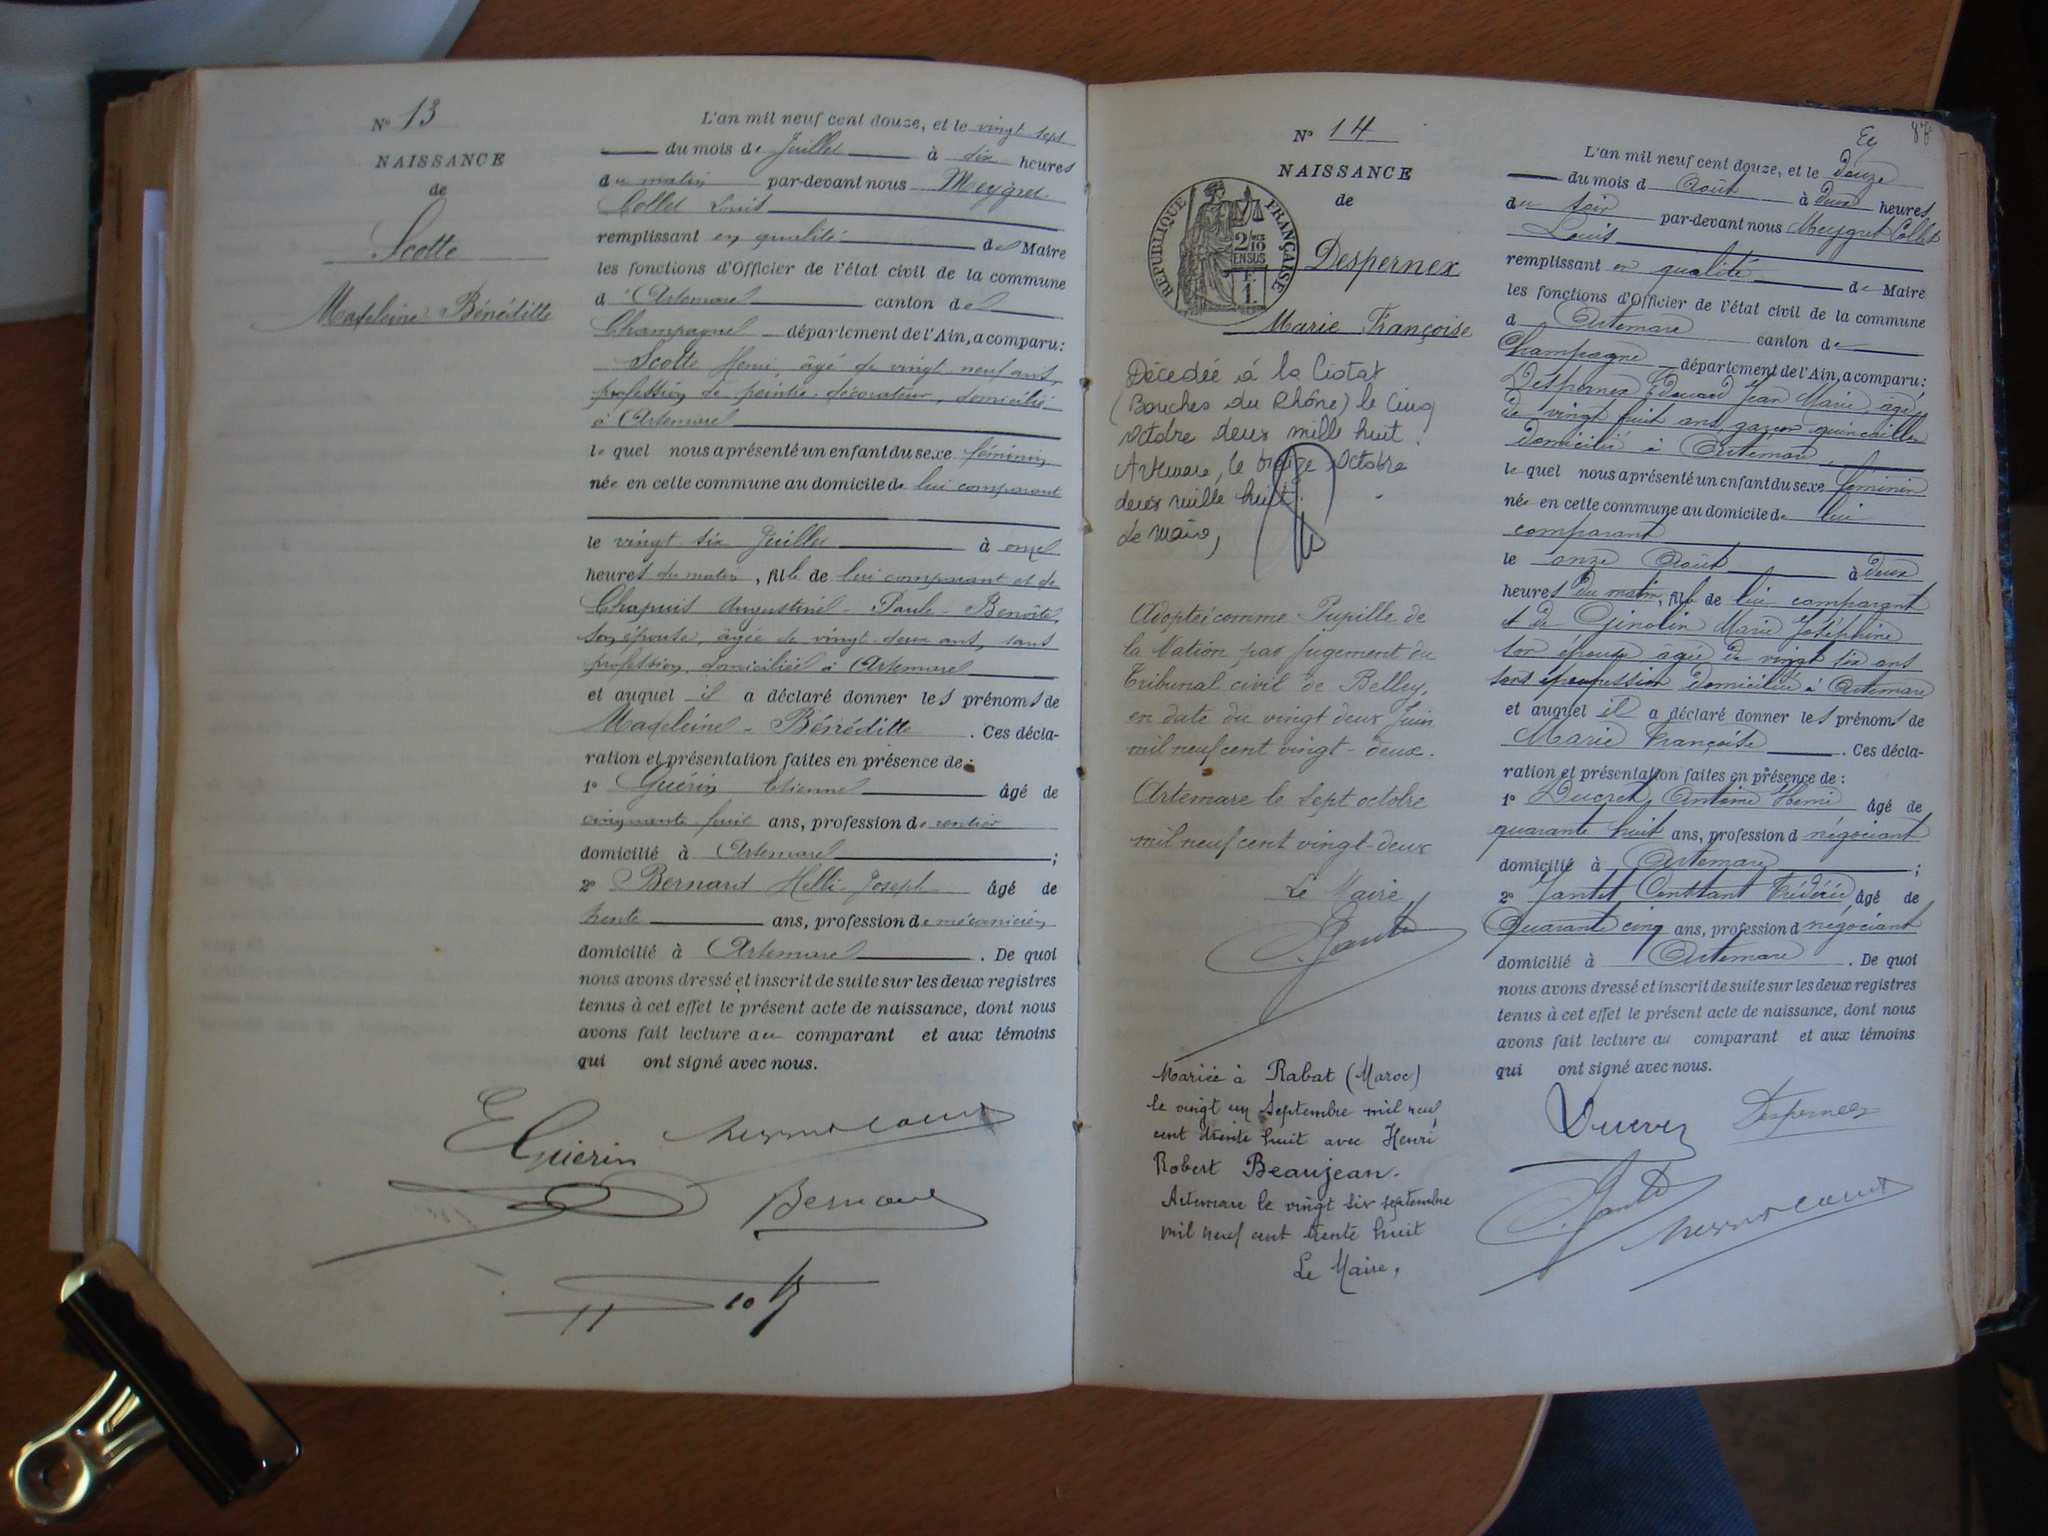 N° 13
NAISSANCE
de
Scotte
Madeleine Bénéditte
L'an mil neuf cent douze, et le vingt sept
du mois de Juillet à six heures
du matin par-devant nous Meygret
Collet Louis
remplissant en qualité de Maire
les fonctions d'Officier de l'état civil de la commune
d'Artemare canton de
Champagne département de l'Ain, a comparu:
Scotte Henri, âgé de vingt neuf ans,
profession de peintre décorateur, domicilié
à Artemare
lequel nous a présenté un enfant du sexe féminin
née en cette commune au domicile de lui comparant
le vingt six Juillet à onze
heures du matin, fille de lui comparant et de
Chapuis Augustine - Paule - Benoîte,
son épouse, âgée de vingt deux ans, sans
profession, domiciliée à Artemare
et auquel il a déclaré donner les prénoms de
Madeleine - Bénéditte. Ces décla-
ration et présentation faites en présence de:
1° Guérin Etienne âgé de
cinquante huit ans, profession de rentier
domicilié à Artemare;
2° Bernard Joseph âgé de
trente ans, profession de mécanicien
domicilié à Artemare. De quoi
nous avons dressé et inscrit de suite sur les deux registres
tenus à cet effet le présent acte de naissance, dont nous
avons fait lecture au comparant et aux témoins
qui ont signé avec nous.
E Guérin
Bernard
87
N° 14
NAISSANCE
de
RÉPUBLIQUE FRANÇAISE
2/10 EN SUS
1F.
Despernex
Marie Françoise
Décedée à la Ciotat
(Bouches du Rhône) le Cinq
octobre deux mille huit.
Artemare, le treize octobre
deux mille huit.
Le maire,
Adoptée comme Pupille de
la Nation par jugement du
Tribunal civil de Belley,
en date du vingt deux Juin
mil neuf cent vingt-deux.
Artemare le sept octobre
mil neuf cent vingt-deux
Le Maire,
Mariée à Rabat (Maroc)
le vingt un septembre mil neuf
cent trente huit avec Henri
Robert Beaujean.
Artemare le vingt six septembre
mil neuf cent trente huit
Le Maire,
L'an mil neuf cent douze, et le Douze
du mois d'Août à deux heures
du soir par-devant nous Meygret Collet
Louis
remplissant en qualité de Maire
les fonctions d'Officier de l'état civil de la commune
d'Artemare canton de
Champagne département de l'Ain, a comparu:
Despernex Edouard Jean Marie, âgé
de vingt huit ans, garçon quincailler
domicilié à Artemare
lequel nous a présenté un enfant du sexe féminin
née en cette commune au domicile de lui
comparant
le onze Août à deux
heures du matin, fille de lui comparant
et de Ginolin Marie Joséphine
son épouse âgée de vingt six ans
sans profession domiciliée à Artemare
et auquel il a déclaré donner les prénoms de
Marie Françoise. Ces décla-
ration et présentation faites en présence de:
1° Ducret Antoine Henri âgé de
quarante huit ans, profession d négociant
domicilié à Artemare;
2° Constant Frédéric, âgé de
Quarante cinq ans, profession d négociant
domicilié à Artemare. De quoi
nous avons dressé et inscrit de suite sur les deux registres
tenus à cet effet le présent acte de naissance, dont nous
avons fait lecture au comparant et aux témoins
qui ont signé avec nous.
Ducret Despernex